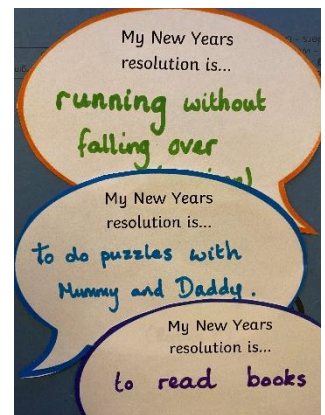 My New Years
resolution is...
running without
falling over
My New Years
resolution is...
to do puzzles with
Mummy and Daddy.
My New Years
resolution is...
to read books